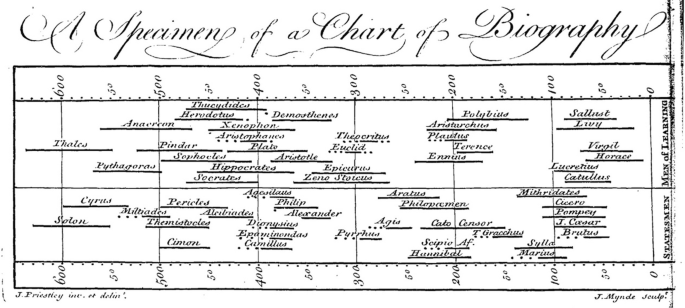 A Specimen of a Chart of Biography
600 50 500 50 400 50 300 50 200 50 100 50 0
Thucydides
Herodotus Demosthenes Polybius Sallust
Anacreon Xenophon Aristarchus Livy
Aristophanes Theocritus Plautus
Thales Pindar Plato Euclid Terence Virgil
Sophocles Aristotle Ennius Horace
Pythagoras Hippocrates Epicurus Lucretius
Socrates Zeno Stoicus Catullus
Men of Learning
Agesilaus Aratus Mithridates
Cyrus Pericles Philip Philopæmen Cicero
Miltiades Alcibiades Alexander Pompey
Solon Themistocles Dionysius Agis Cato Censor J. Cæsar
Epaminondas Pyrrhus T Gracchus Brutus
Cimon Camillus Scipio Af. Sylla
Hannibal Marius
Statesmen
600 50 500 50 400 50 300 50 200 50 100 50 0
J. Priestley inv. et delin.t J. Mynde sculp.t